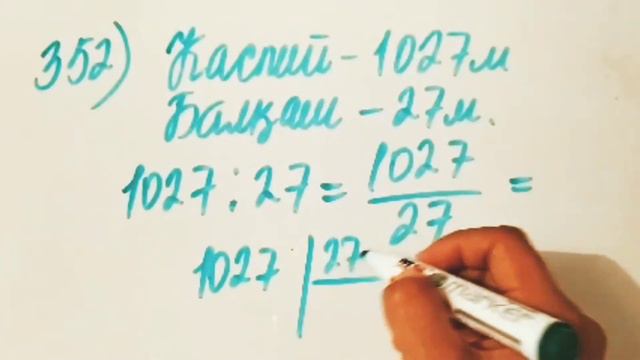 352) Каспий - 1027м
Балқаш - 27м.
1027 : 27 = 1027/27 =
1027 | 27